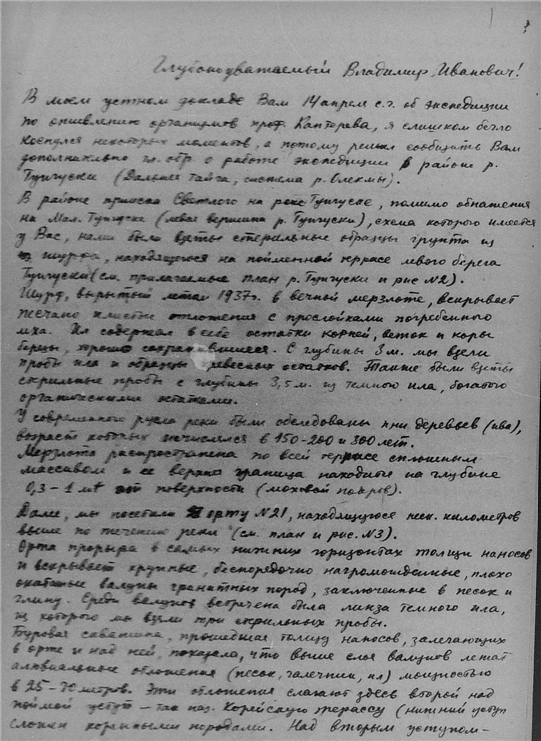 Глубокоуважаемый Владимир Иванович!
В моем устном докладе Вам 14 апреля с.г. об экспедиции
по оживлению организмов проф. Каптерева, я слишком бегло
коснулся некоторых моментов, а потому решил сообщить Вам
дополнительно гл. обр. о работе экспедиции в районе р.
Тунгуски (Дальняя тайга, система р. Олекмы).
В районе прииска Светлого на реке Тунгуске, помимо обнажения
на Мал. Тунгуске (левая вершина р. Тунгуски), схема которого имеется
у Вас, нами были взяты стерильные образцы грунта из
шурфа, находящегося на пойменной террасе левого берега
Тунгуски (см. прилагаемые план р. Тунгуски и рис №2).
Шурф, вырытый летом 1937г. в вечной мерзлоте, вскрывает
песчано илистые отложения с прослойками погребенного
мха. Ил содержал в себе остатки корней, веток и коры
березы, хорошо сохранившиеся. С глубины 8 м. мы взяли
пробы ила и образцы древесных остатков. Также были взяты
стерильные пробы с глубины 3,5 м. из темного ила, богатого
органическими остатками.
У современного русла реки были обследованы пни деревьев (ива),
возраст которых исчислялся в 150-200 и 300 лет.
Мерзлота распространена по всей террасе сплошным
массивом и ее верхняя граница находится на глубине
0,3-1 м от поверхности (моховой покров).
Далее, мы посетили орту №21, находящуюся неск. километров
выше по течению реки (см. план и рис. №3).
Орта прорыта в самых нижних горизонтах толщи наносов
и вскрывает крупные, беспорядочно нагроможденные, плохо
окатанные валуны гранитных пород, заключенные в песок и
глину. Среди валунов встречена была линза темного ила,
из которого мы взяли три стерильных пробы.
Буровая скважина, прошедшая толщу наносов, залегающих
в орте и над ней, показала, что выше слоя валунов лежат
аллювиальные отложения (песок, галечник, ил) мощностью
в 25-70 метров. Эти отложения слагают здесь второй над
поймой уступ - так наз. Корейскую террасу (нижний уступ
сложен коренными породами. Над вторым уступом-